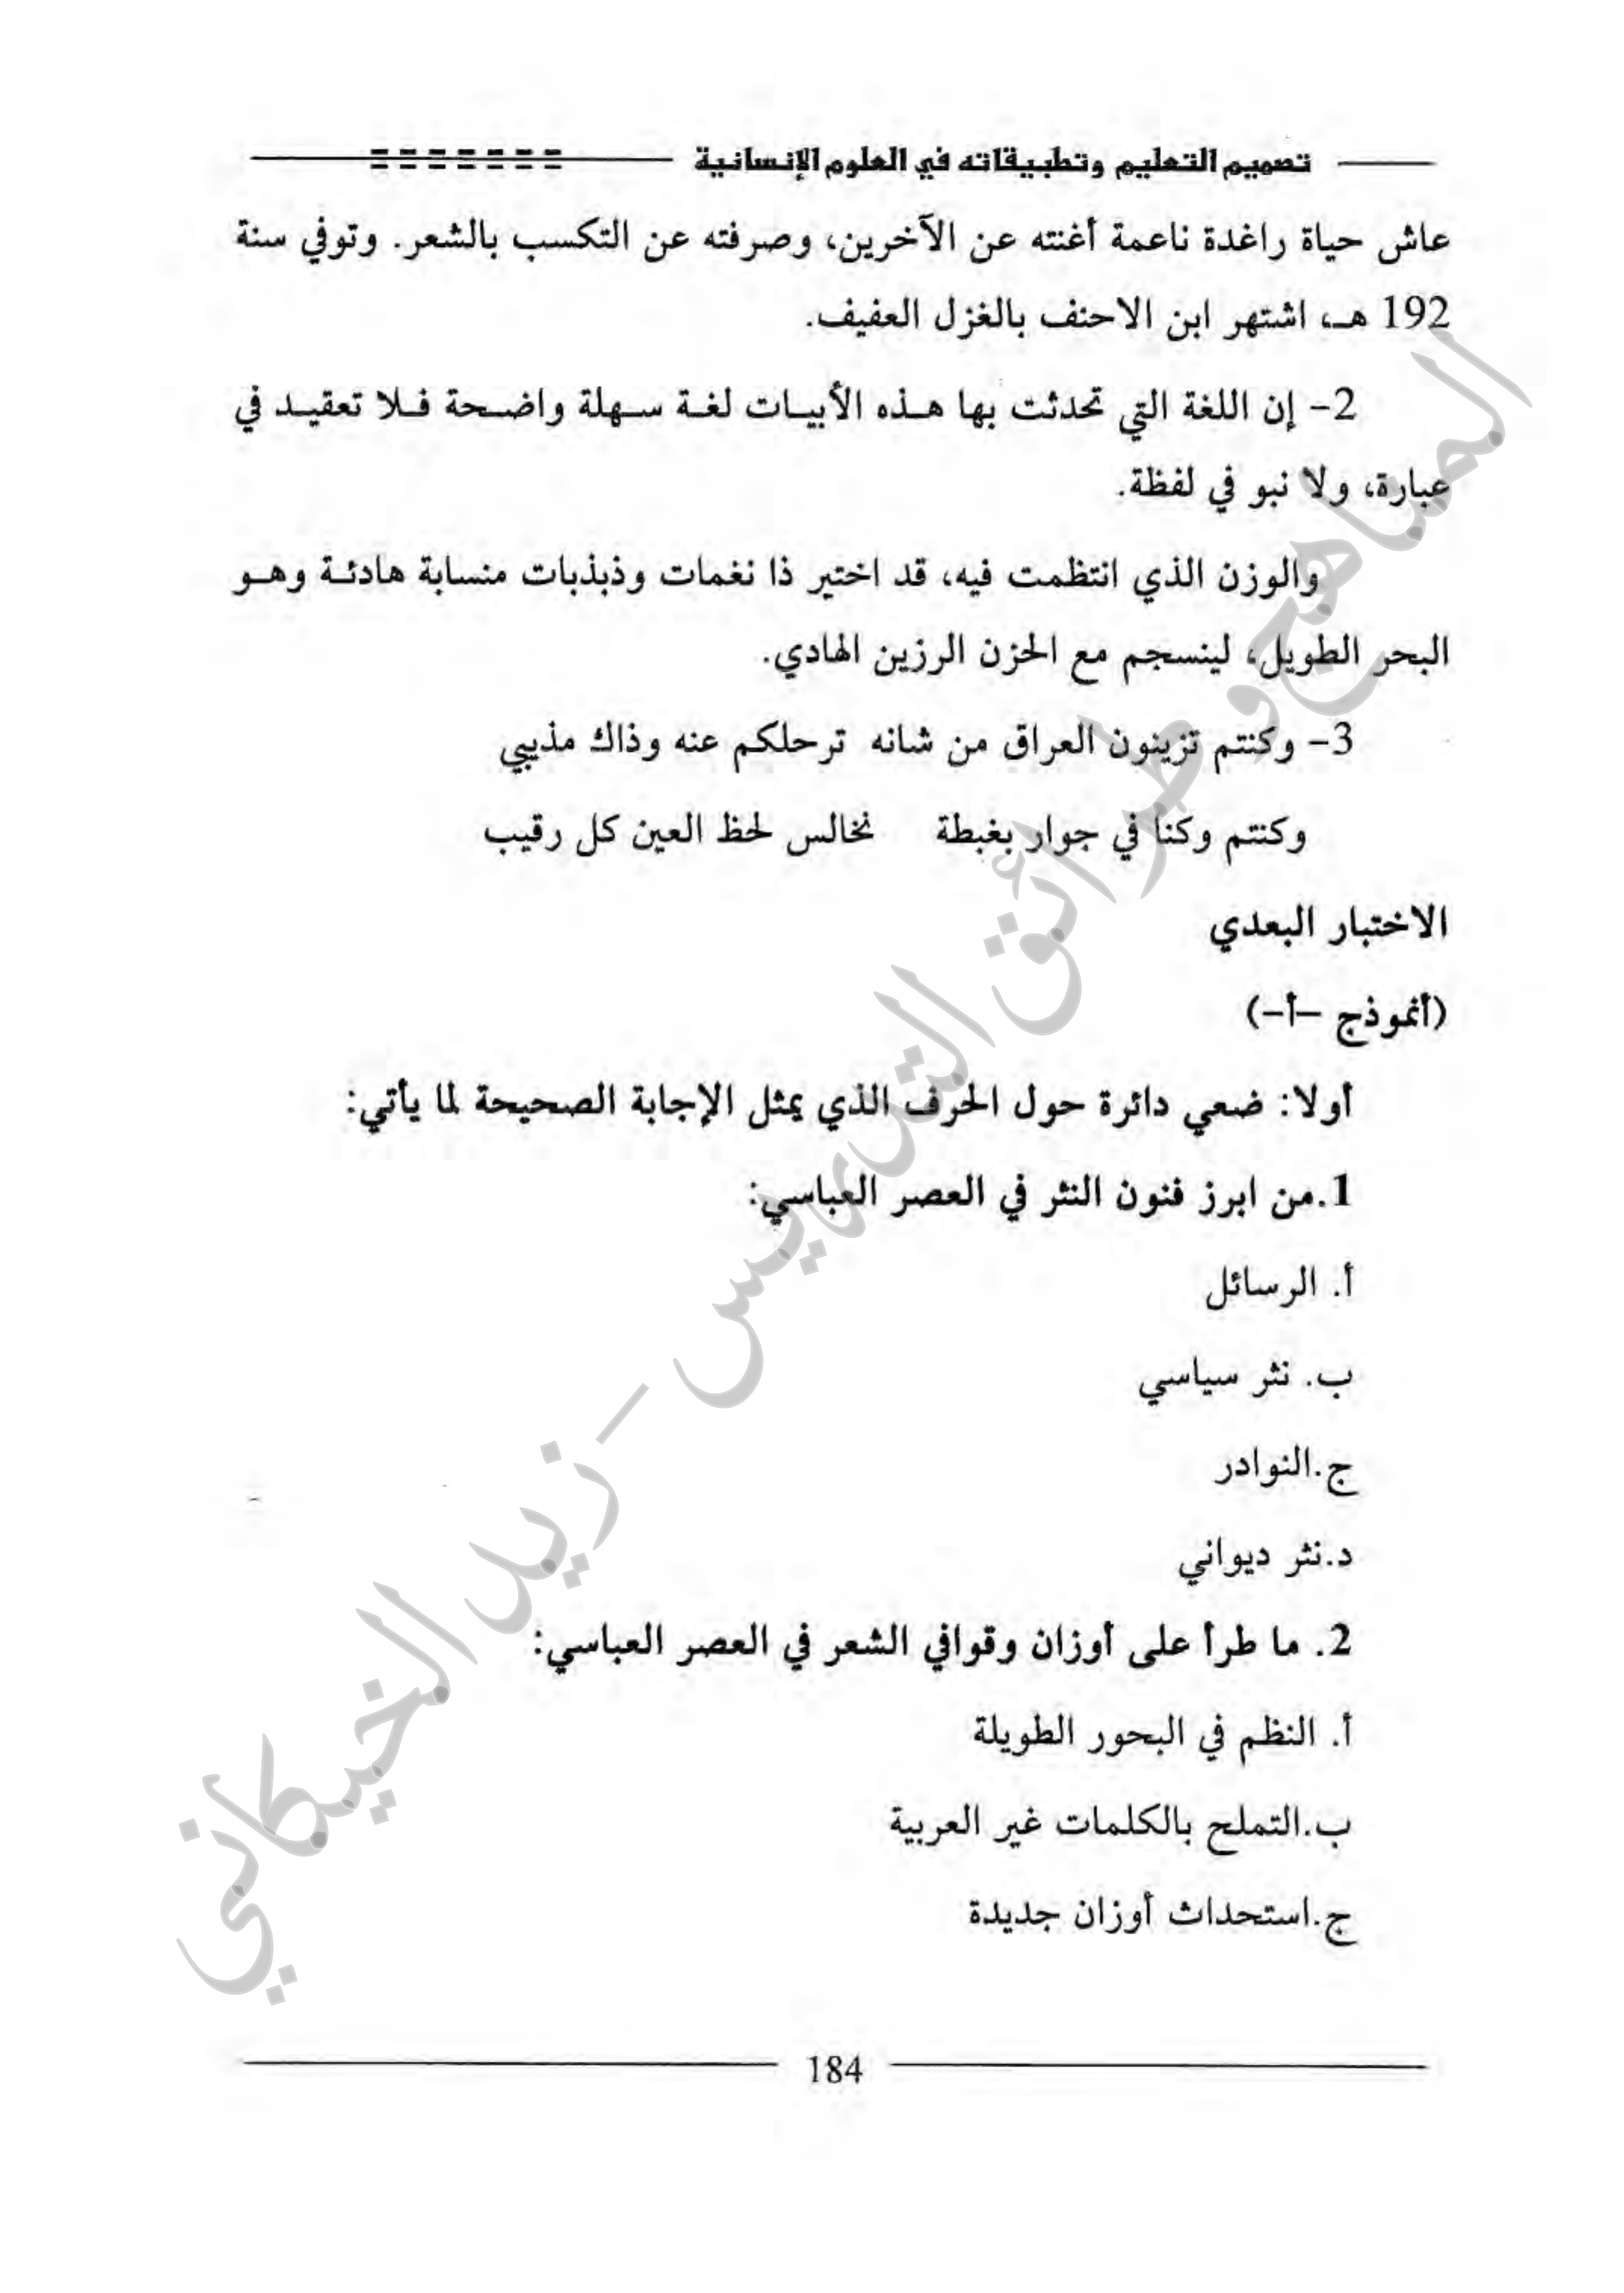 تصميم التعليم وتطبيقاته في العلوم الإنسانية
عاش حياة راغدة ناعمة أغنته عن الآخرين، وصرفته عن التكسب بالشعر. وتوفي سنة
192 هـ، اشتهر ابن الاحنف بالغزل العفيف.
2- إن اللغة التي تحدثت بها هذه الأبيات لغة سهلة واضحة فلا تعقيد في
عبارة، ولا نبو في لفظة.
والوزن الذي انتظمت فيه، قد اختير ذا نغمات وذبذبات منسابة هادئة وهو
البحر الطويل، لينسجم مع الحزن الرزين الهادي.
3- وكنتم تزينون العراق من شانه ترحلكم عنه وذاك مذيبي
وكنتم وكنا في جوار بغبطة نخالس لحظ العين كل رقيب
الاختبار البعدي
(أنموذج -أ-)
أولا: ضعي دائرة حول الحرف الذي يمثل الإجابة الصحيحة لما يأتي:
1.من ابرز فنون النثر في العصر العباسي:
أ. الرسائل
ب. نثر سياسي
ج.النوادر
د.نثر ديواني
2. ما طرأ على أوزان وقوافي الشعر في العصر العباسي:
أ. النظم في البحور الطويلة
ب.التملح بالكلمات غير العربية
ج.استحداث أوزان جديدة
184
المناهج وطرائق التدريس - زيد الخيكاني